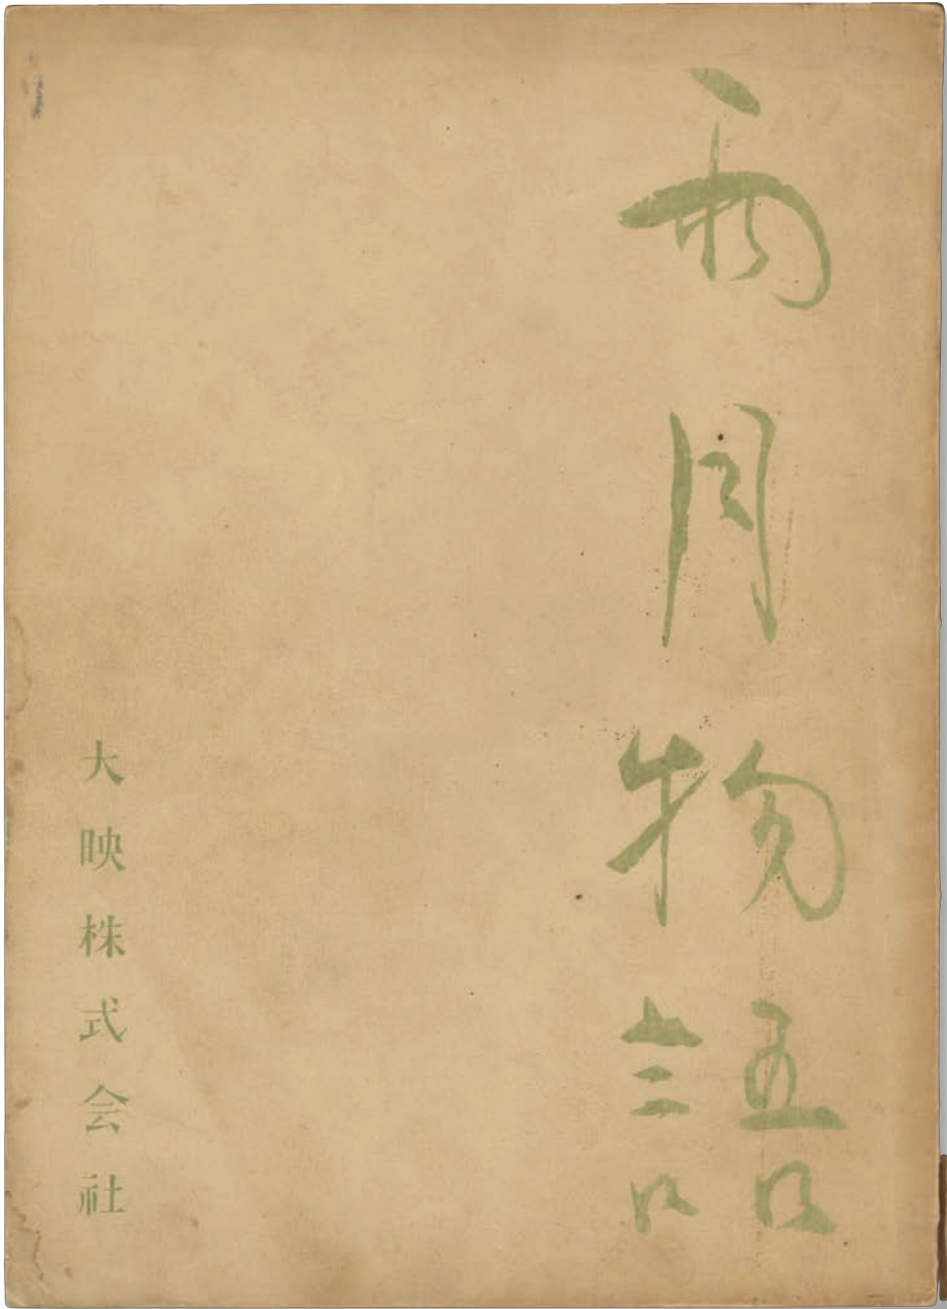 雨月物語
大映株式会社